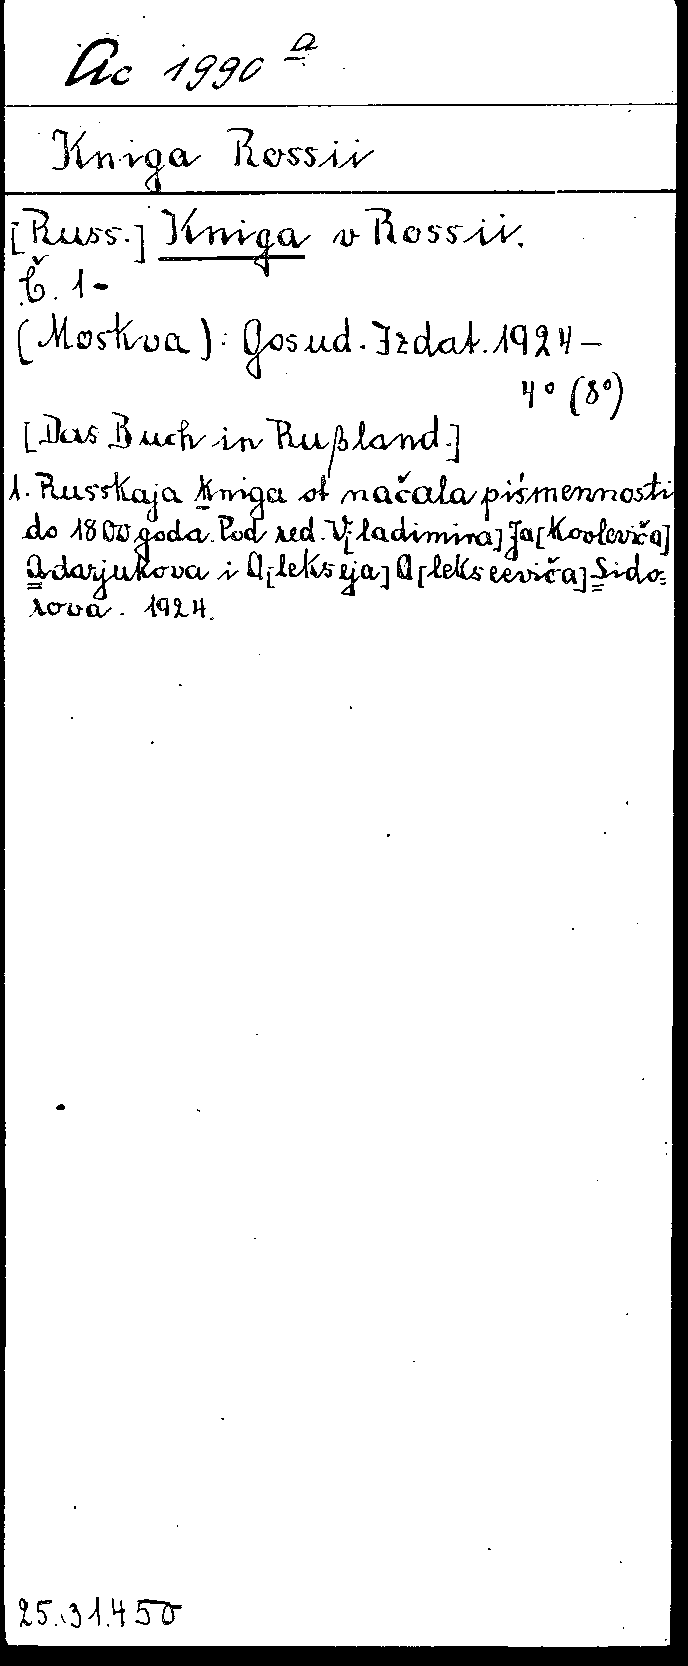 Ac 1990 a
Kniga Rossii
[Russ.] Kniga v Rossii.
Č. 1-
(Moskva): Gosud. Izdat. 1924–
4° (8°)
[Das Buch in Rußland.]
1. Russkaja kniga ot načala piśmennosti
do 1800 goda. Pod red. V[ladimira] Ja[kovleviča]
Adarjukova i A[lekseja] A[lekseeviča] Sido=
rova. 1924.
25.31.450